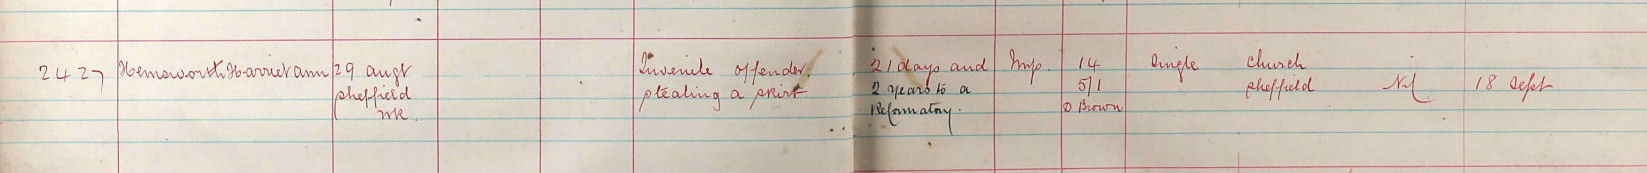 2427 Hemsworth Harriet ann 29 augt Juvenile offender. 21 days and Imp. 14 Single Church
Sheffield stealing a skirt 2 years to a 5/1 Sheffield Nil 18 Sept
WR. Reformatory. D Brown